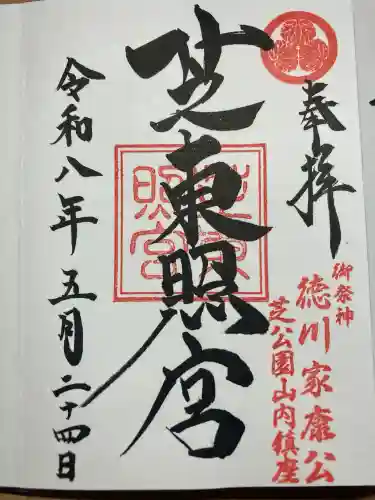 奉拝
御祭神
徳川家康公
芝公園山内鎮座
芝東照宮
芝東照宮
令和八年五月二十四日